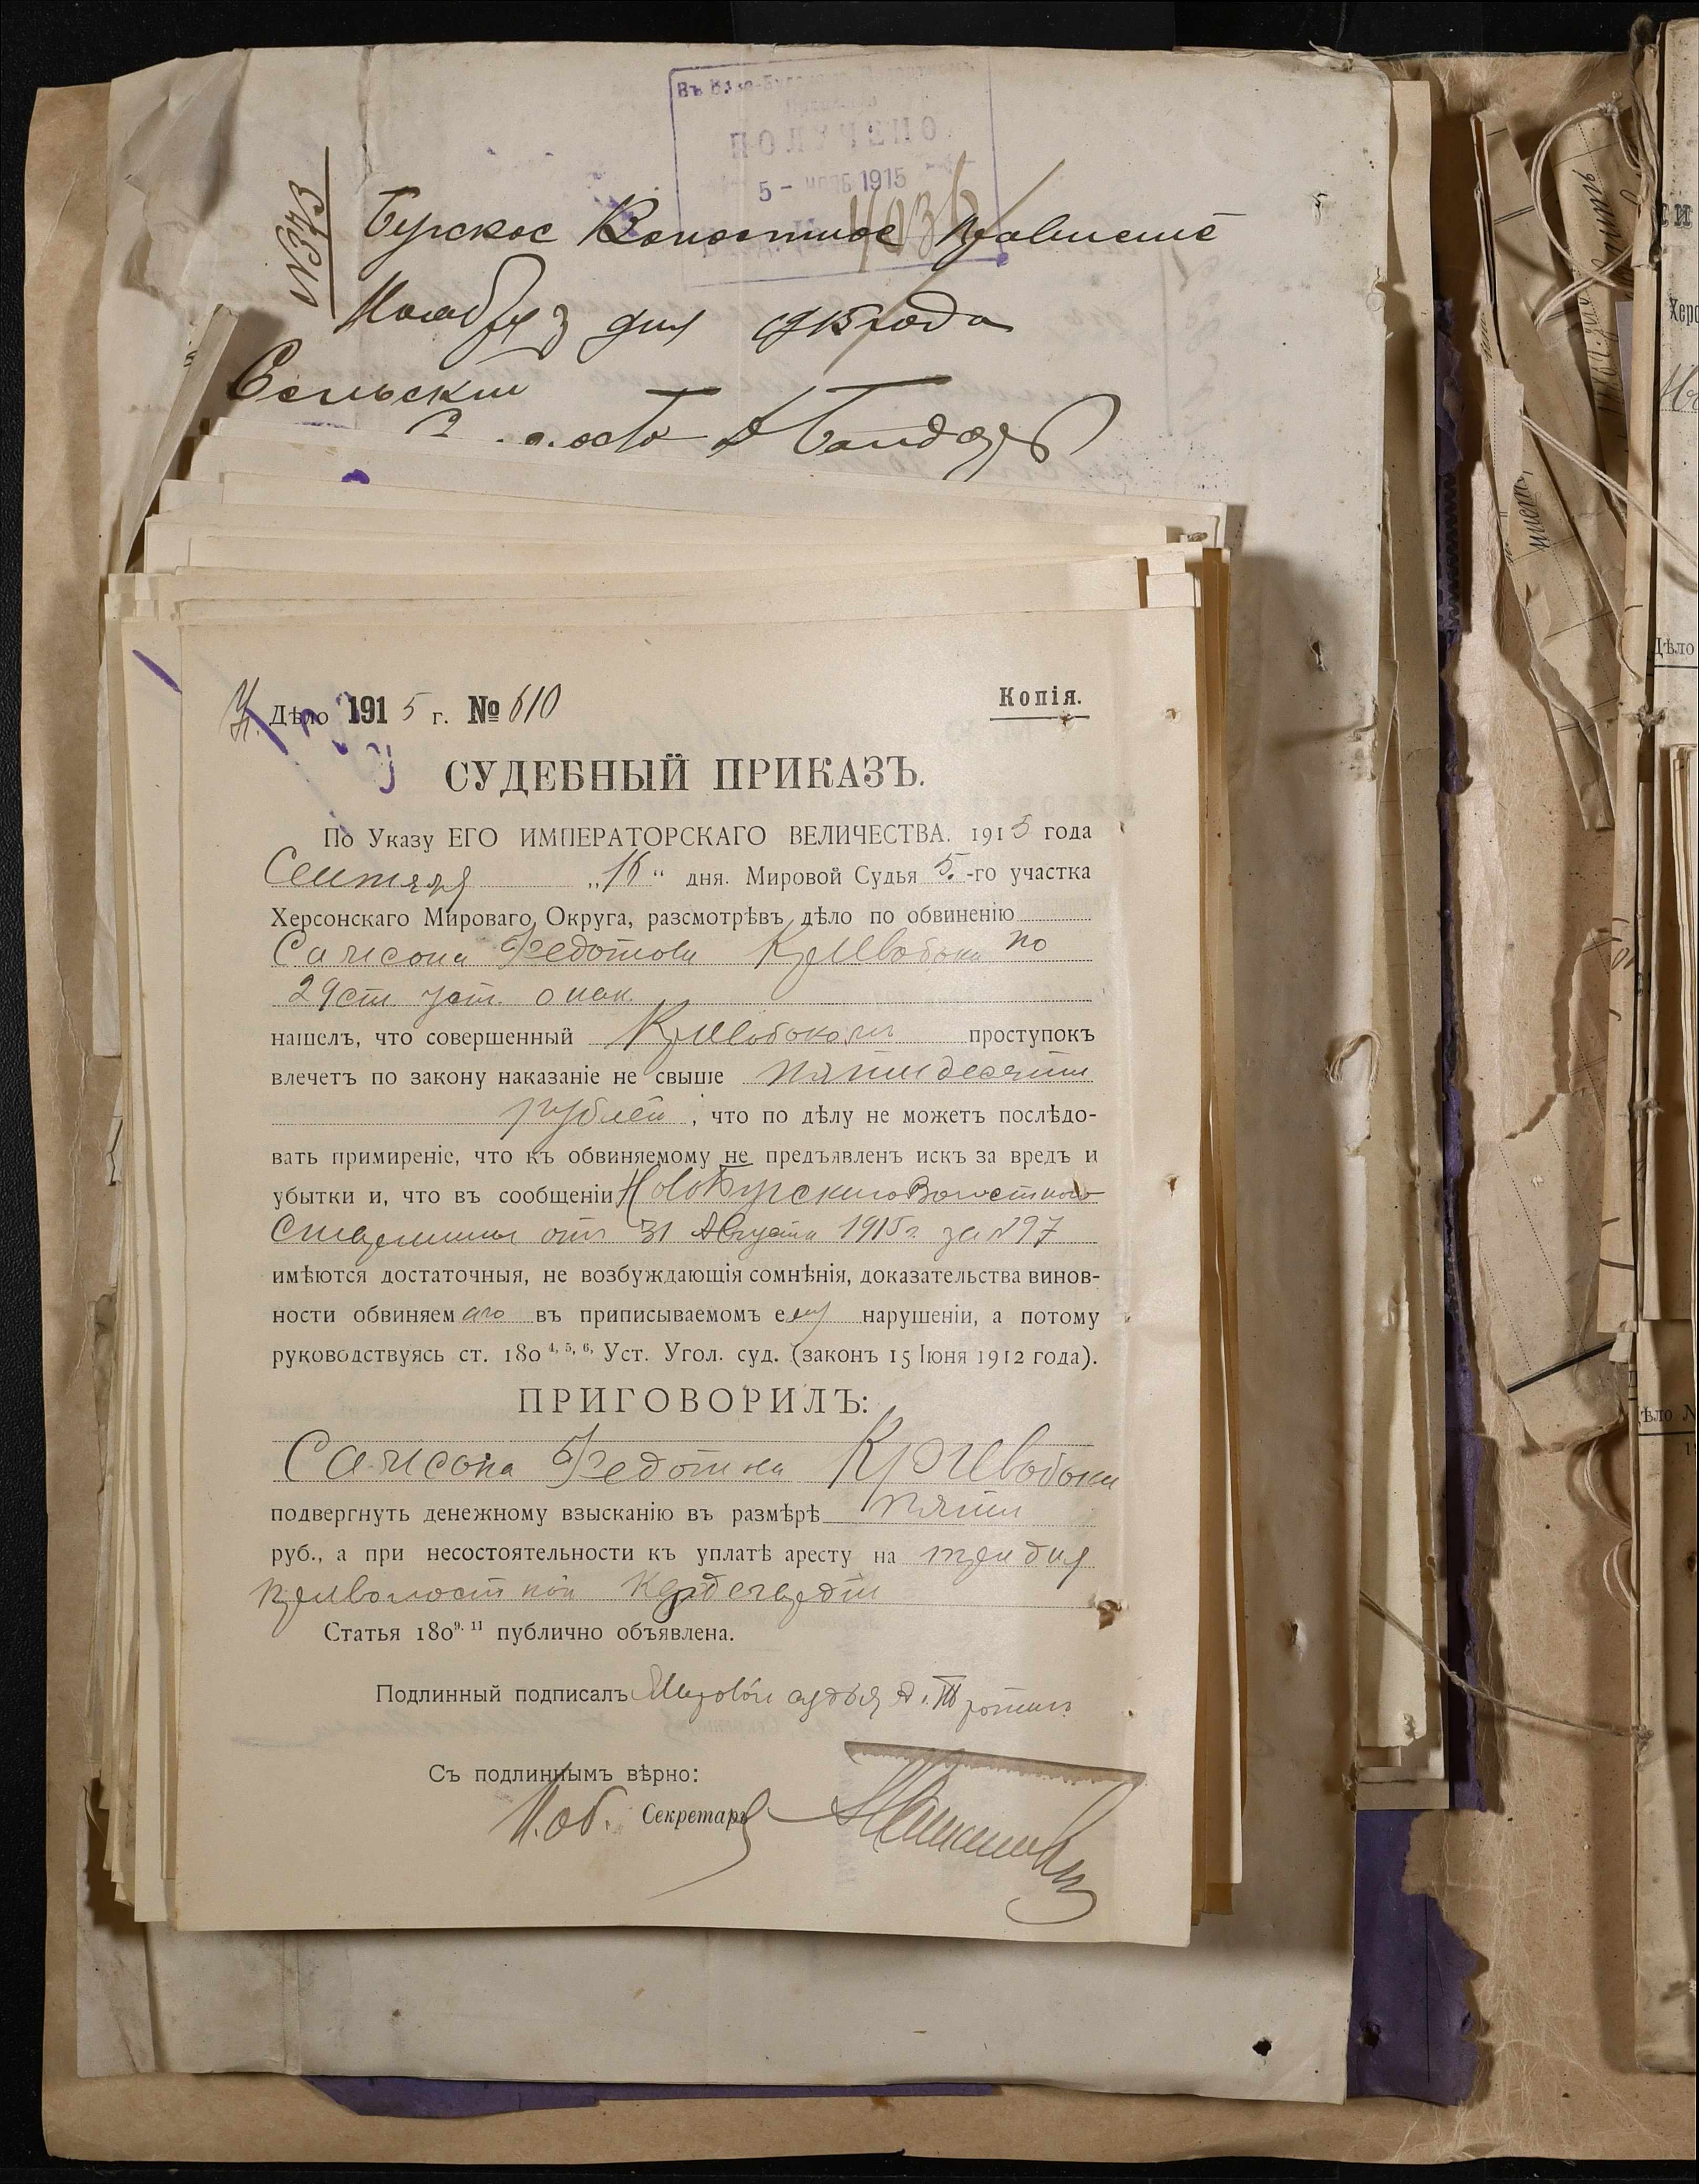 ПОЛУЧЕНО
5 - 1915
4036
№373
Бугское Волостное Правление
Ноября 3 дня 1915 года
Сельский
Копія.
Дѣло 1915 г. № 610
СУДЕБНЫЙ ПРИКАЗЪ.
По Указу ЕГО ИМПЕРАТОРСКАГО ВЕЛИЧЕСТВА. 1915 года
Сентября „16“ дня. Мировой Судья 5.-го участка
Херсонскаго Мироваго Округа, разсмотрѣвъ дѣло по обвиненію
Самсона Федотова Кривобока по
29 ст. уст. о нак.
нашелъ, что совершенный Кривобокомъ проступокъ
влечетъ по закону наказаніе не свыше пятидесяти
рублей, что по дѣлу не можетъ послѣдо-
вать примиреніе, что къ обвиняемому не предъявленъ искъ за вредъ и
убытки и, что въ сообщеніи НовоБугскаго Волостного
Старшины отъ 31 Августа 1915 г. за №97
имѣются достаточныя, не возбуждающія сомнѣнія, доказательства винов-
ности обвиняемаго въ приписываемомъ ему нарушеніи, а потому
руководствуясь ст. 180 4, 5, 6, Уст. Угол. суд. (законъ 15 Іюня 1912 года).
ПРИГОВОРИЛЪ:
Самсона Федотова Кривобока
подвергнуть денежному взысканію въ размѣрѣ пяти
руб., а при несостоятельности къ уплатѣ аресту на три дня
при волостной
Статья 180 9. 11 публично объявлена.
Подлинный подписалъ Мировой судья
Съ подлиннымъ вѣрно:
И. об. Секретаря